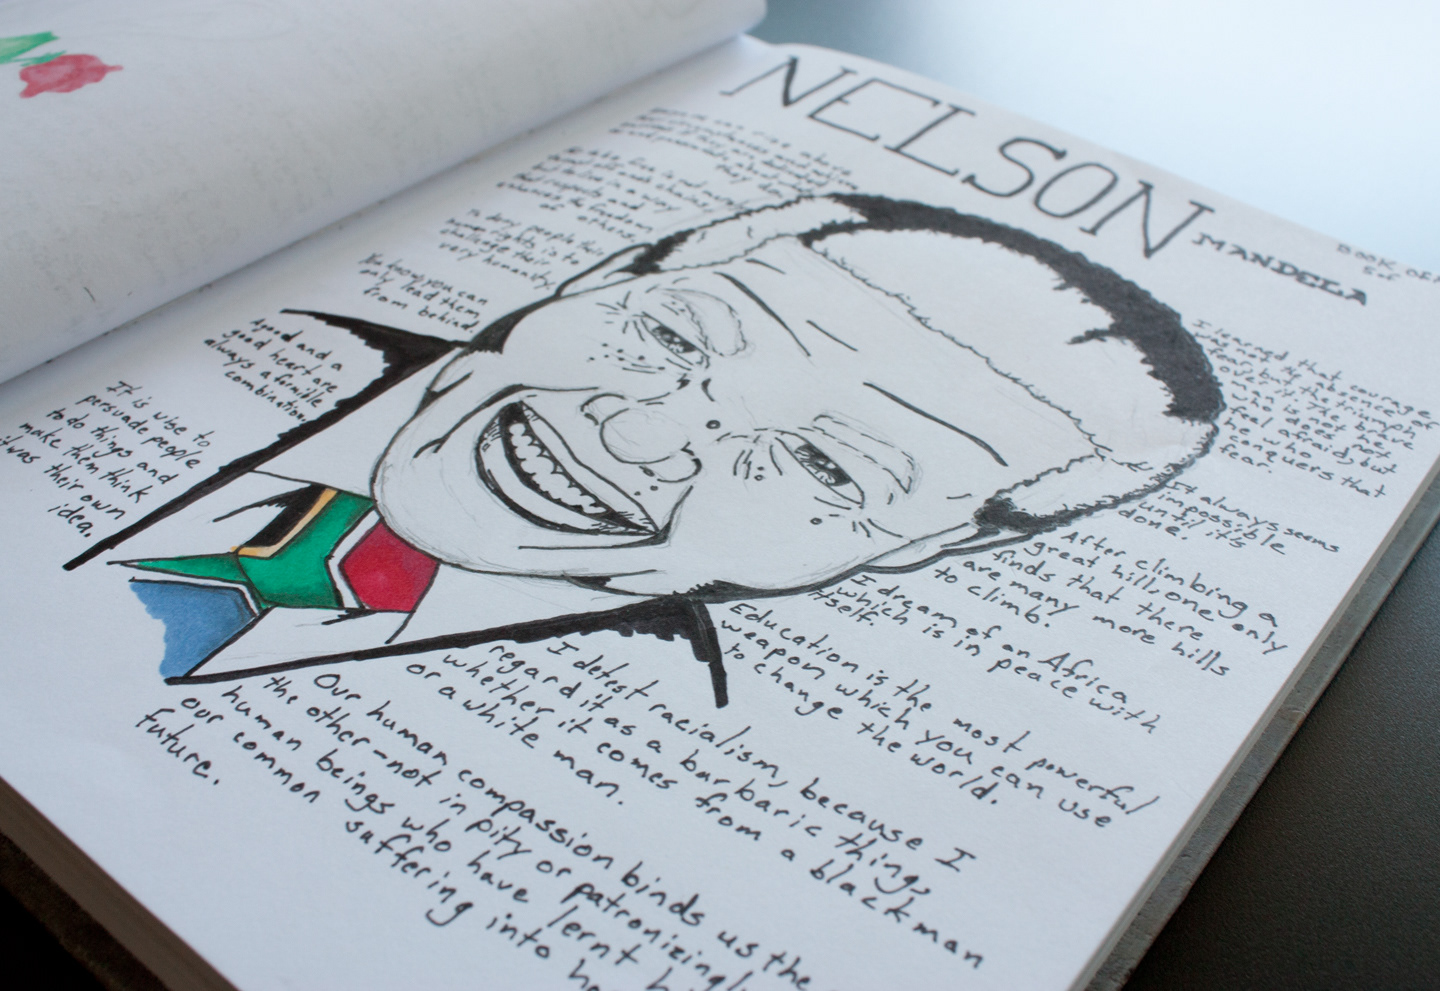 NELSON
MANDELA
BOOK OF
I learned that courage
was not the absence of
fear, but the triumph
over it. The brave
man is not he
who does not
feel afraid, but
he who
conquers that
fear.
It always seems
impossible
until it's
done.
After climbing a
great hill, one only
finds that there
are many more hills
to climb.
I dream of an Africa
which is in peace with
itself.
Education is the most powerful
weapon which you can use
to change the world.
I detest racialism, because I
regard it as a barbaric thing,
whether it comes from a blackman
or a white man.
Our human compassion binds us the
the other—not in pity or patronizingly
human beings who have lernt
our common suffering into
future.
To deny people their
human rights is to
challenge their
very humanity.
You can
only lead them
from behind.
A good and a
good heart are
always a
combination.
It is wise to
persuade people
to do things and
make them think
it was their own
idea.